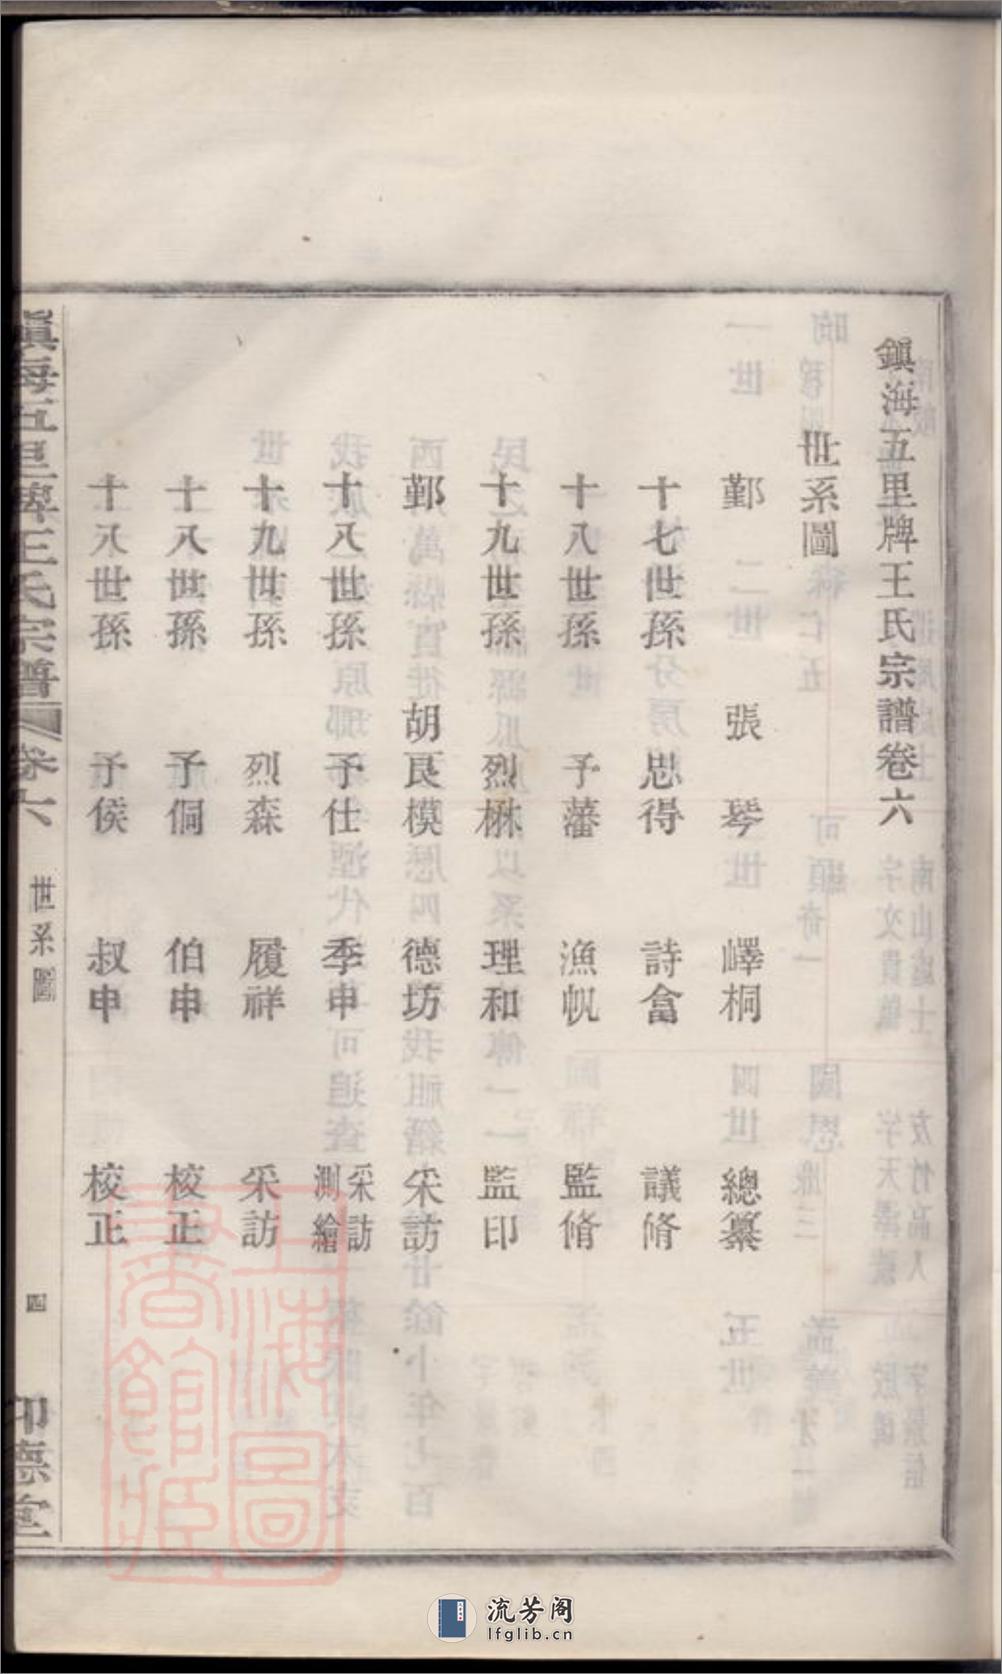 鎮海五里牌王氏宗譜卷六
世系圖
鄞 張 琴 嶧桐 總纂
十七世孫 思得 詩畣 議脩
十八世孫 予藩 漁帆 監脩
十九世孫 烈楙 理和 監印
鄞 胡良模 德坊 采訪
十八世孫 予仕 季申 采訪 測繪
十九世孫 烈森 履祥 采訪
十八世孫 予侗 伯申 校正
十八世孫 予侯 叔申 校正
鎮海五里牌王氏宗譜 卷六 世系圖 四 印德堂
上海圖書館藏
流芳阁
lfglib.cn